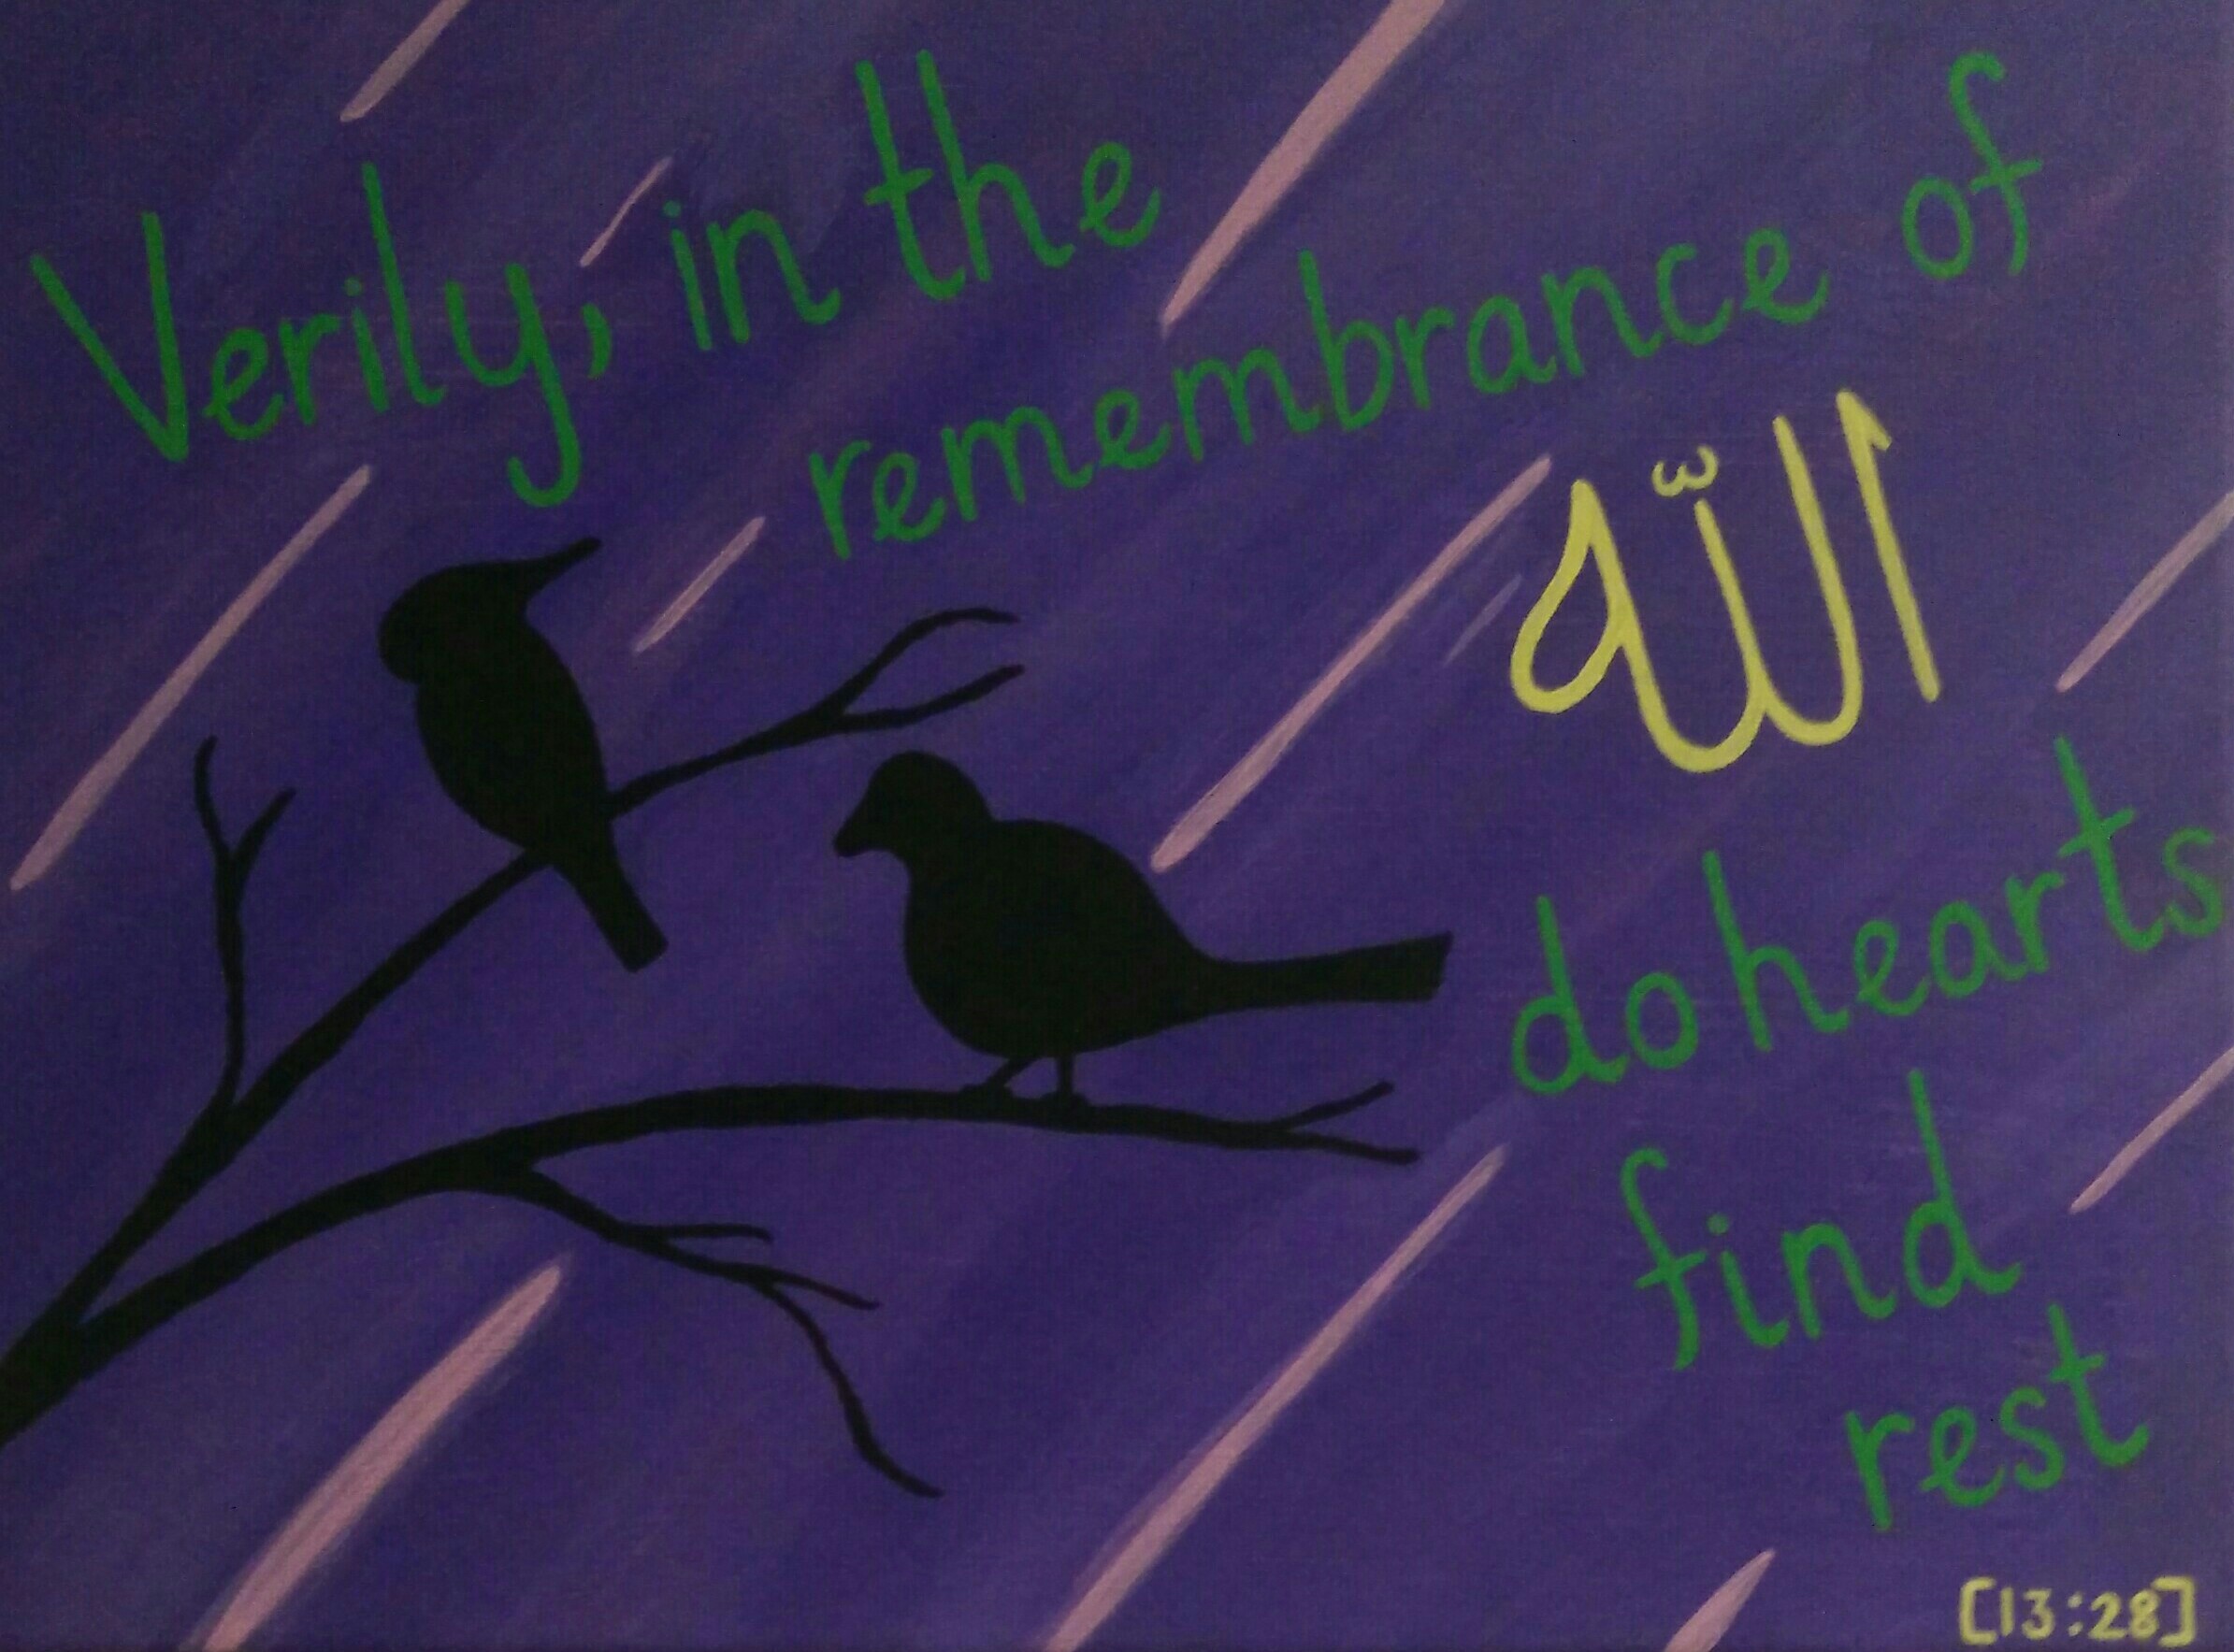 Verily, in the
remembrance of
اللّه
do hearts
find
rest
[13:28]